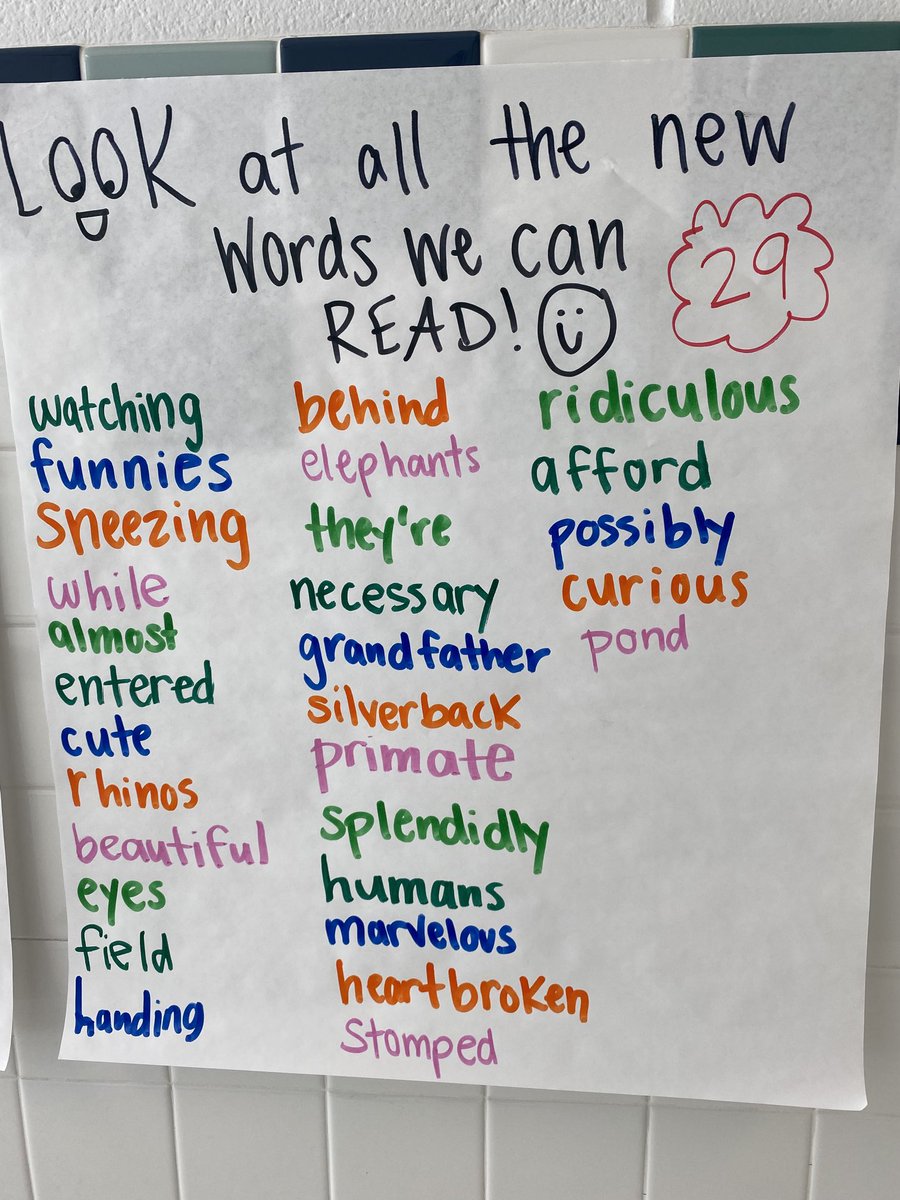 Look at all the new
words we can
READ!
29
watching
funnies
Sneezing
while
almost
entered
cute
rhinos
beautiful
eyes
field
handing
behind
elephants
they're
necessary
grandfather
silverback
primate
splendidly
humans
marvelous
heartbroken
Stomped
ridiculous
afford
possibly
curious
pond